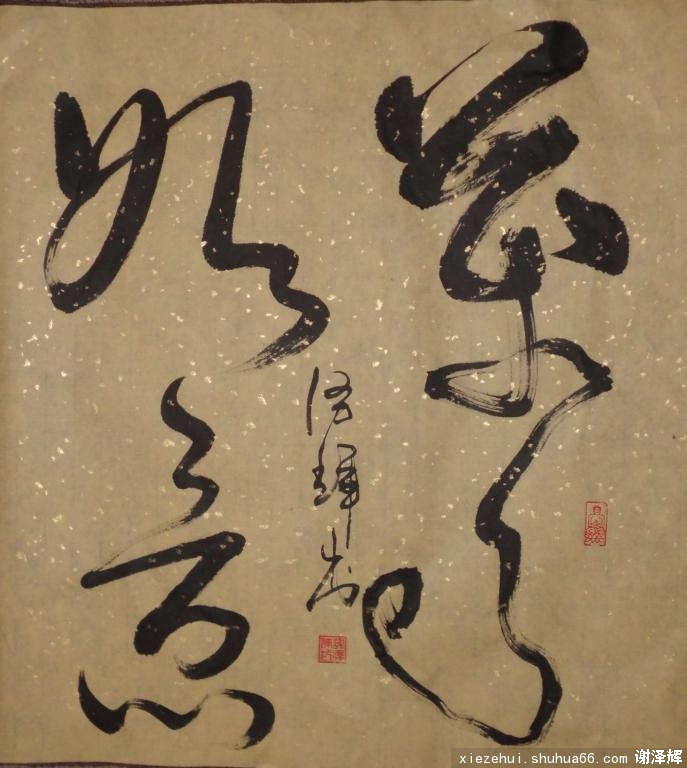 萬事
如意
xiezehui.shuhua66.com 谢泽辉